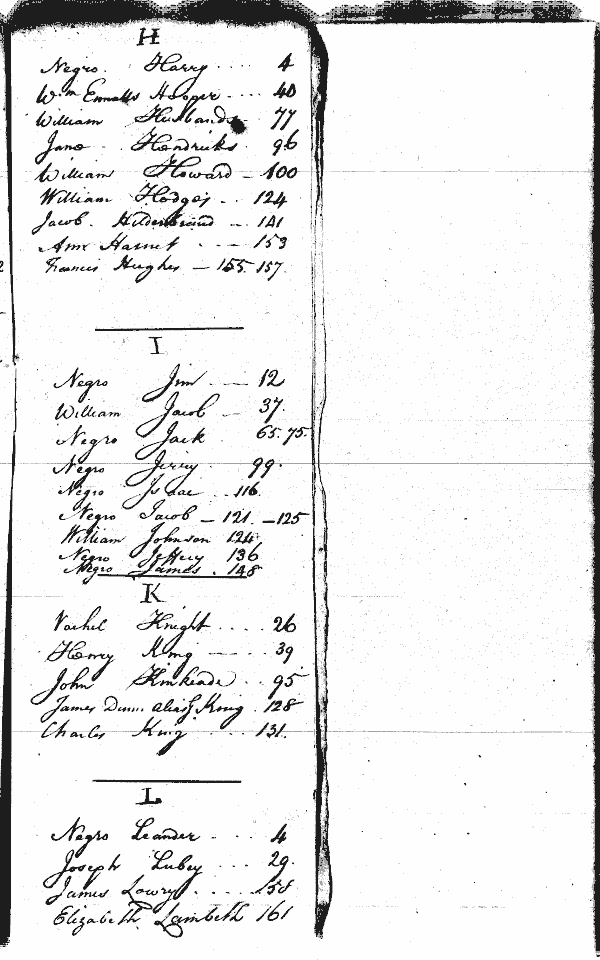 H
Negro. Harry .... 4
Wm Ennalls Hooper .... 40
William Husbands 77
Jane Hendricks 96
William Howard - 100
William Hodges .. 124
Jacob. Hilderbrand - 141
Ann Harnet . . - 153
Francis Hughes - 155. 157
I
Negro Jim . - 12
William Jacob - 37.
Negro Jack 65. 75.
Negro Jerry 99.
Negro Isaac .. 116.
Negro Jacob - 121. -125
William Johnson 124
Negro Jeffery 136
Negro James . 148
K
Vachel Knight .... 26
Henry King - ... 39
John Kinkeade .. 95
James Dunn alias King . 128
Charles King ... 131.
L
Negro Leander . . . 4
Joseph Lubey ... 29.
James Lowry .....158
Elizabeth Lambeth 161